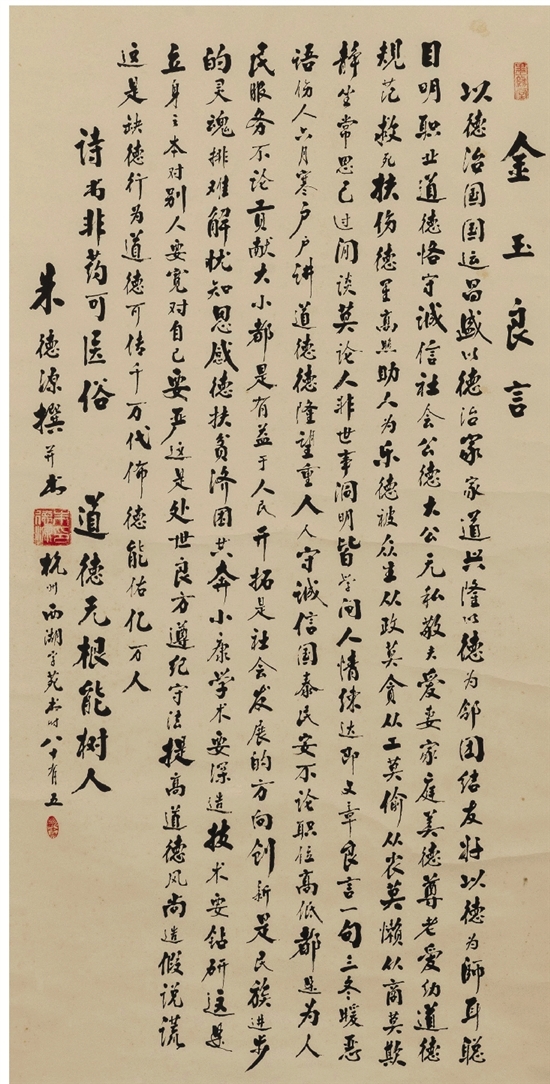 金玉良言
以德治国国运昌盛以德治家家道兴隆以德为邻团结友好以德为师耳聪
目明职业道德恪守诚信社会公德大公无私敬夫爱妻家庭美德尊老爱幼道德
规范救死扶伤德星高照助人为乐德被众生从政莫贪从工莫偷从农莫懒从商莫欺
静坐常思己过闲谈莫论人非世事洞明皆学问人情练达即文章良言一句三冬暖恶
语伤人六月寒户户讲道德德隆望重人人守诚信国泰民安不论职位高低都是为人
民服务不论贡献大小都是有益于人民开拓是社会发展的方向创新是民族进步
的灵魂排难解忧知恩感德扶贫济困共奔小康学术要深造技术要钻研这是
立身之本对别人要宽对自己要严这是处世良方遵纪守法提高道德风尚造假说谎
这是缺德行为道德可传千万代佈德能佑亿万人
诗书非药可医俗 道德无根能树人
朱德源撰并书 杭州西湖字苑书时八十有五